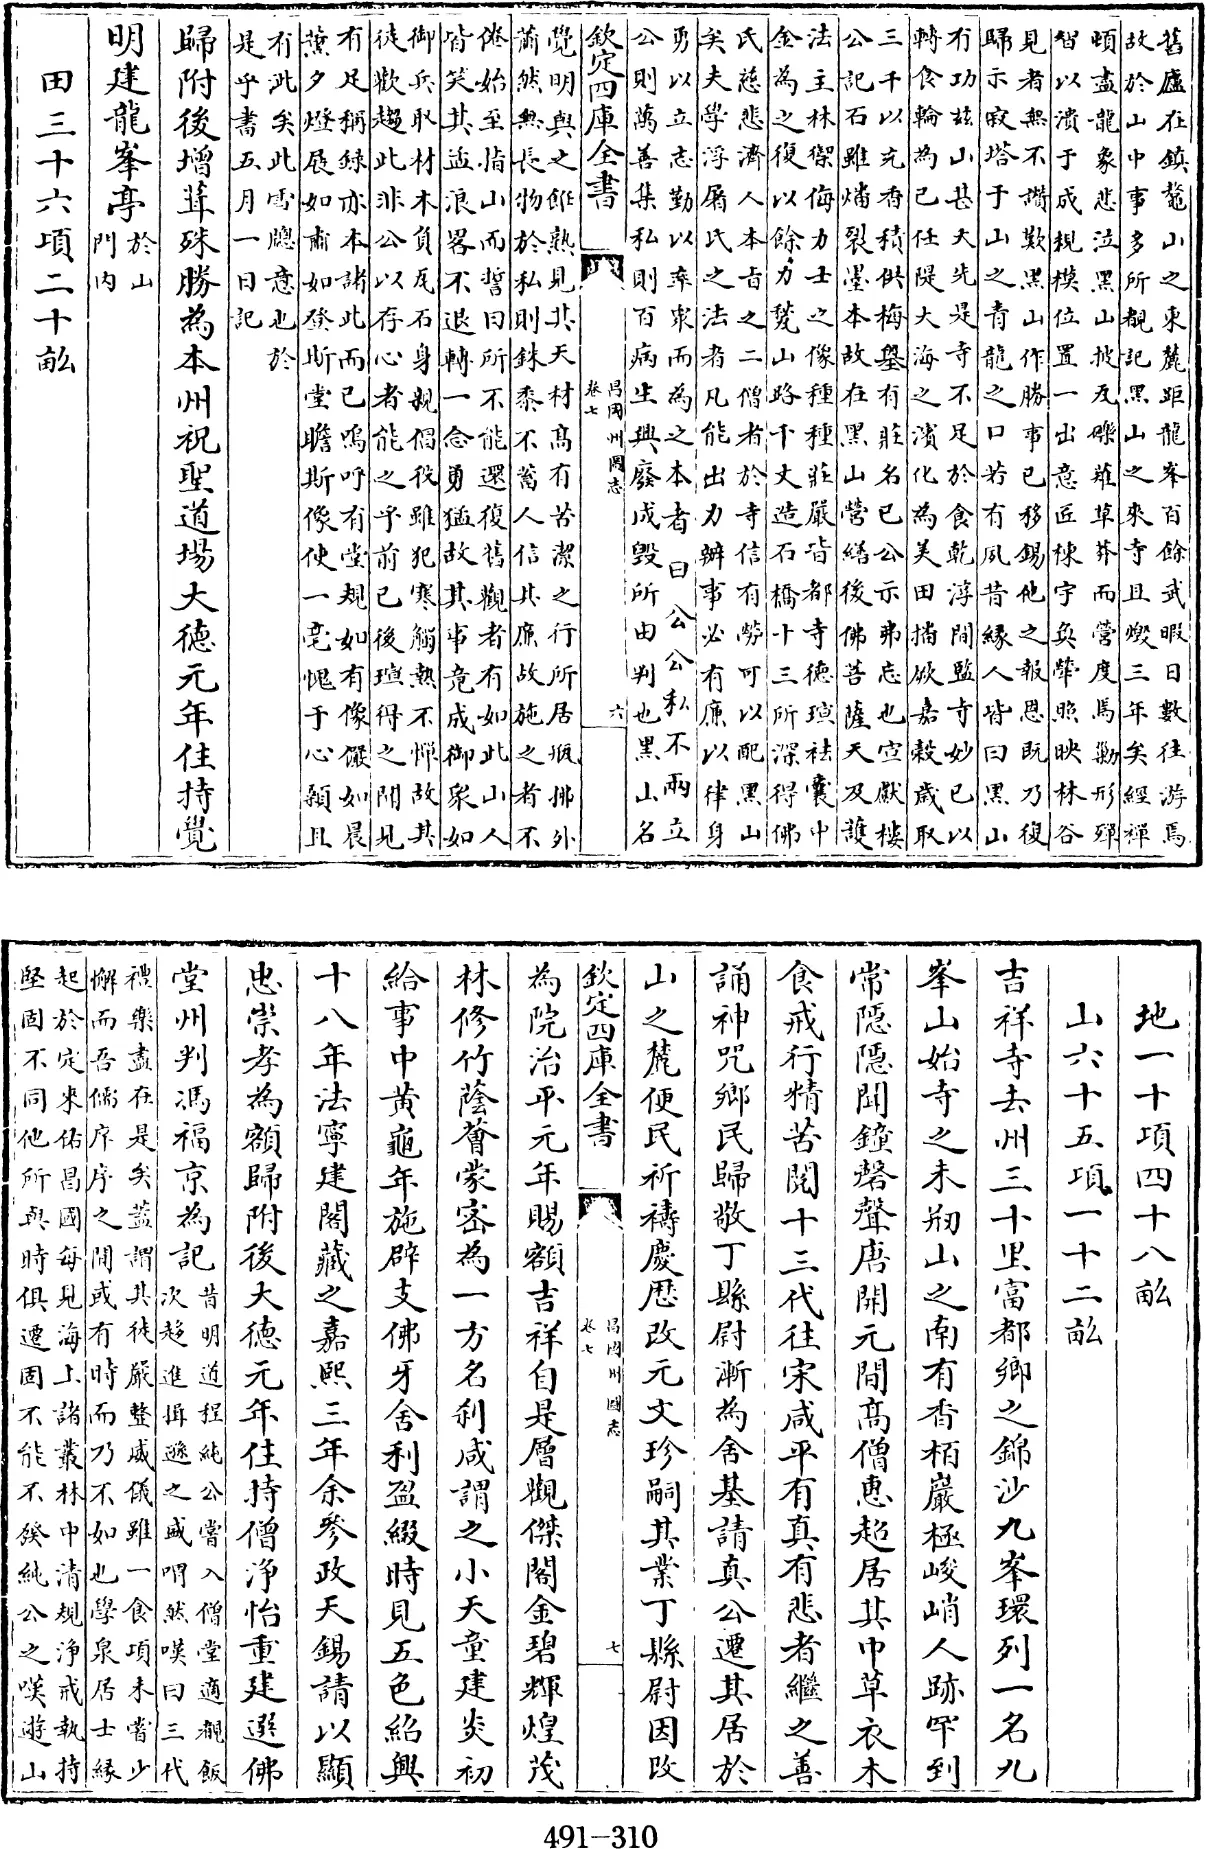 舊廬在鎮鼇山之東麓距龍峯百餘武暇日數往游焉
故於山中事多所覩記黑山之來寺且燬三年矣經禪
頓盡龍象悲泣黑山披瓦礫薙草莽而營度焉勚形殫
智以潰于成規模位置一出意匠棟宇奐犖照映林谷
見者無不讃歎黑山作勝事已移錫他之報恩既乃復
歸示寂塔于山之青龍之口若有夙昔緣人皆曰黑山
有功玆山甚大先是寺不足於食乾淳間監寺妙已以
轉食輪為已任隄大海之濱化為美田播厥嘉穀歲取
三千以充香積供梅墾有莊名已公示弗忘也空獻樓
公記石雖燔裂墨本故在黑山營繕後佛菩薩天及護
法主林禦侮力士之像種種莊嚴皆都寺德瑄袪囊中
金為之復以餘力甃山路千丈造石橋十三所深得佛
氏慈悲濟人本旨之二僧者於寺信有勞可以配黑山
矣夫學浮屠氏之法者凡能出力辦事必有廉以律身
勇以立志勤以率衆而為之本者曰公公私不兩立
公則萬善集私則百病生興廢成毀所由判也黑山名
欽定四庫全書
昌國州圖志
卷七
六
覺明與之雅熟見其天材高有苦潔之行所居瓶拂外
蕭然無長物於私則銖黍不蓄人信其廉故施之者不
倦始至指山而誓曰所不能還復舊觀者有如此山人
皆笑其孟浪畧不退轉一念勇猛故其事竟成御衆如
御兵取材木負瓦石身親倡役雖犯寒觸熱不憚故其
徒歡趨此非公以存心者能之乎前已後瑄得之聞見
有足稱録亦本諸此而已嗚呼有堂規如有像儼如晨
薰夕燈展如肅如登斯堂瞻斯像使一毫愧于心顙且
有此矣此雪牕意也於
是乎書五月一日記
歸附後增葺殊勝為本州祝聖道場大德元年住持覺
明建龍峯亭於山
門内
田三十六項二十畝
地一十項四十八畝
山六十五項一十二畝
吉祥寺去州三十里富都鄉之錦沙九峯環列一名九
峯山始寺之未剏山之南有香栢巖極峻峭人跡罕到
常隱隱聞鐘磬聲唐開元間高僧惠超居其中草衣木
食戒行精苦閱十三代往宋咸平有真有悲者繼之善
誦神咒鄉民歸敬丁縣尉漸為舍基請真公遷其居於
山之麓便民祈禱慶歴改元文珍嗣其業丁縣尉因改
欽定四庫全書
昌國州圖志
卷七
七
為院治平元年賜額吉祥自是層觀傑閣金碧輝煌茂
林修竹蔭薈蒙密為一方名刹咸謂之小天童建炎初
給事中黄龜年施辟支佛牙舍利盈綴時見五色紹興
十八年法寧建閣藏之嘉熙三年余參政天錫請以顯
忠崇孝為額歸附後大德元年住持僧淨怡重建選佛
堂州判馮福京為記昔明道程純公嘗入僧堂適觀飯
次趍進揖遜之盛喟然嘆曰三代
禮樂盡在是矣葢謂其徒嚴整威儀雖一食項未嘗少
懈而吾儒庠序之間或有時而乃不如也學泉居士緣
起於定来佑昌國每見海上諸叢林中清規淨戒執持
堅固不同他所與時俱遷固不能不發純公之嘆遊山
491-310